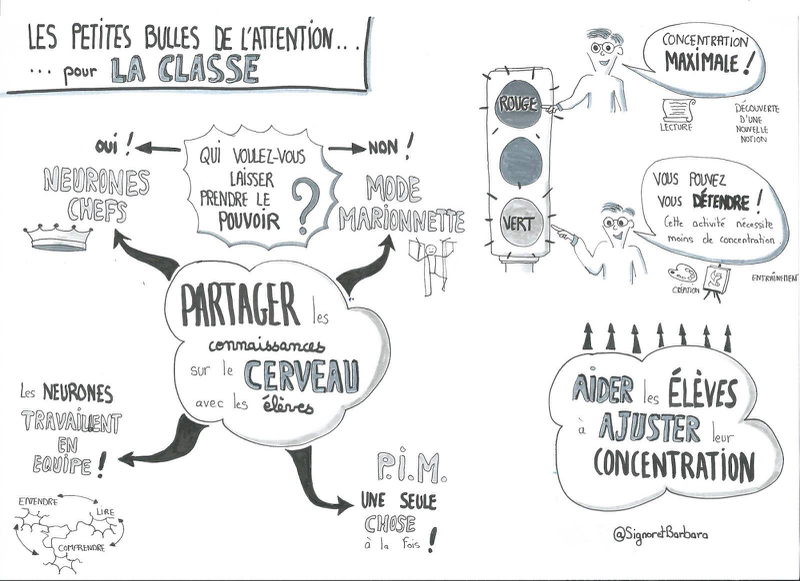 LES PETITES BULLES DE L'ATTENTION...
... pour LA CLASSE
OUI !
QUI VOULEZ-VOUS
LAISSER
PRENDRE LE
POUVOIR ?
NON !
NEURONES
CHEFS
MODE
MARIONNETTE
PARTAGER les
connaissances
sur le CERVEAU
avec les élèves
Les NEURONES
TRAVAILLENT
EN
EQUIPE !
ENTENDRE
LIRE
COMPRENDRE
P.i.M.
UNE SEULE
CHOSE
à la fois !
ROUGE
VERT
CONCENTRATION
MAXIMALE !
LECTURE
DÉCOUVERTE
D'UNE
NOUVELLE
NOTION
VOUS POUVEZ
VOUS DÉTENDRE !
Cette activité nécessite
moins de concentration.
CRÉATION
ENTRAÎNEMENT
AIDER les ÉLÈVES
à AJUSTER leur
CONCENTRATION
@SignoretBarbara